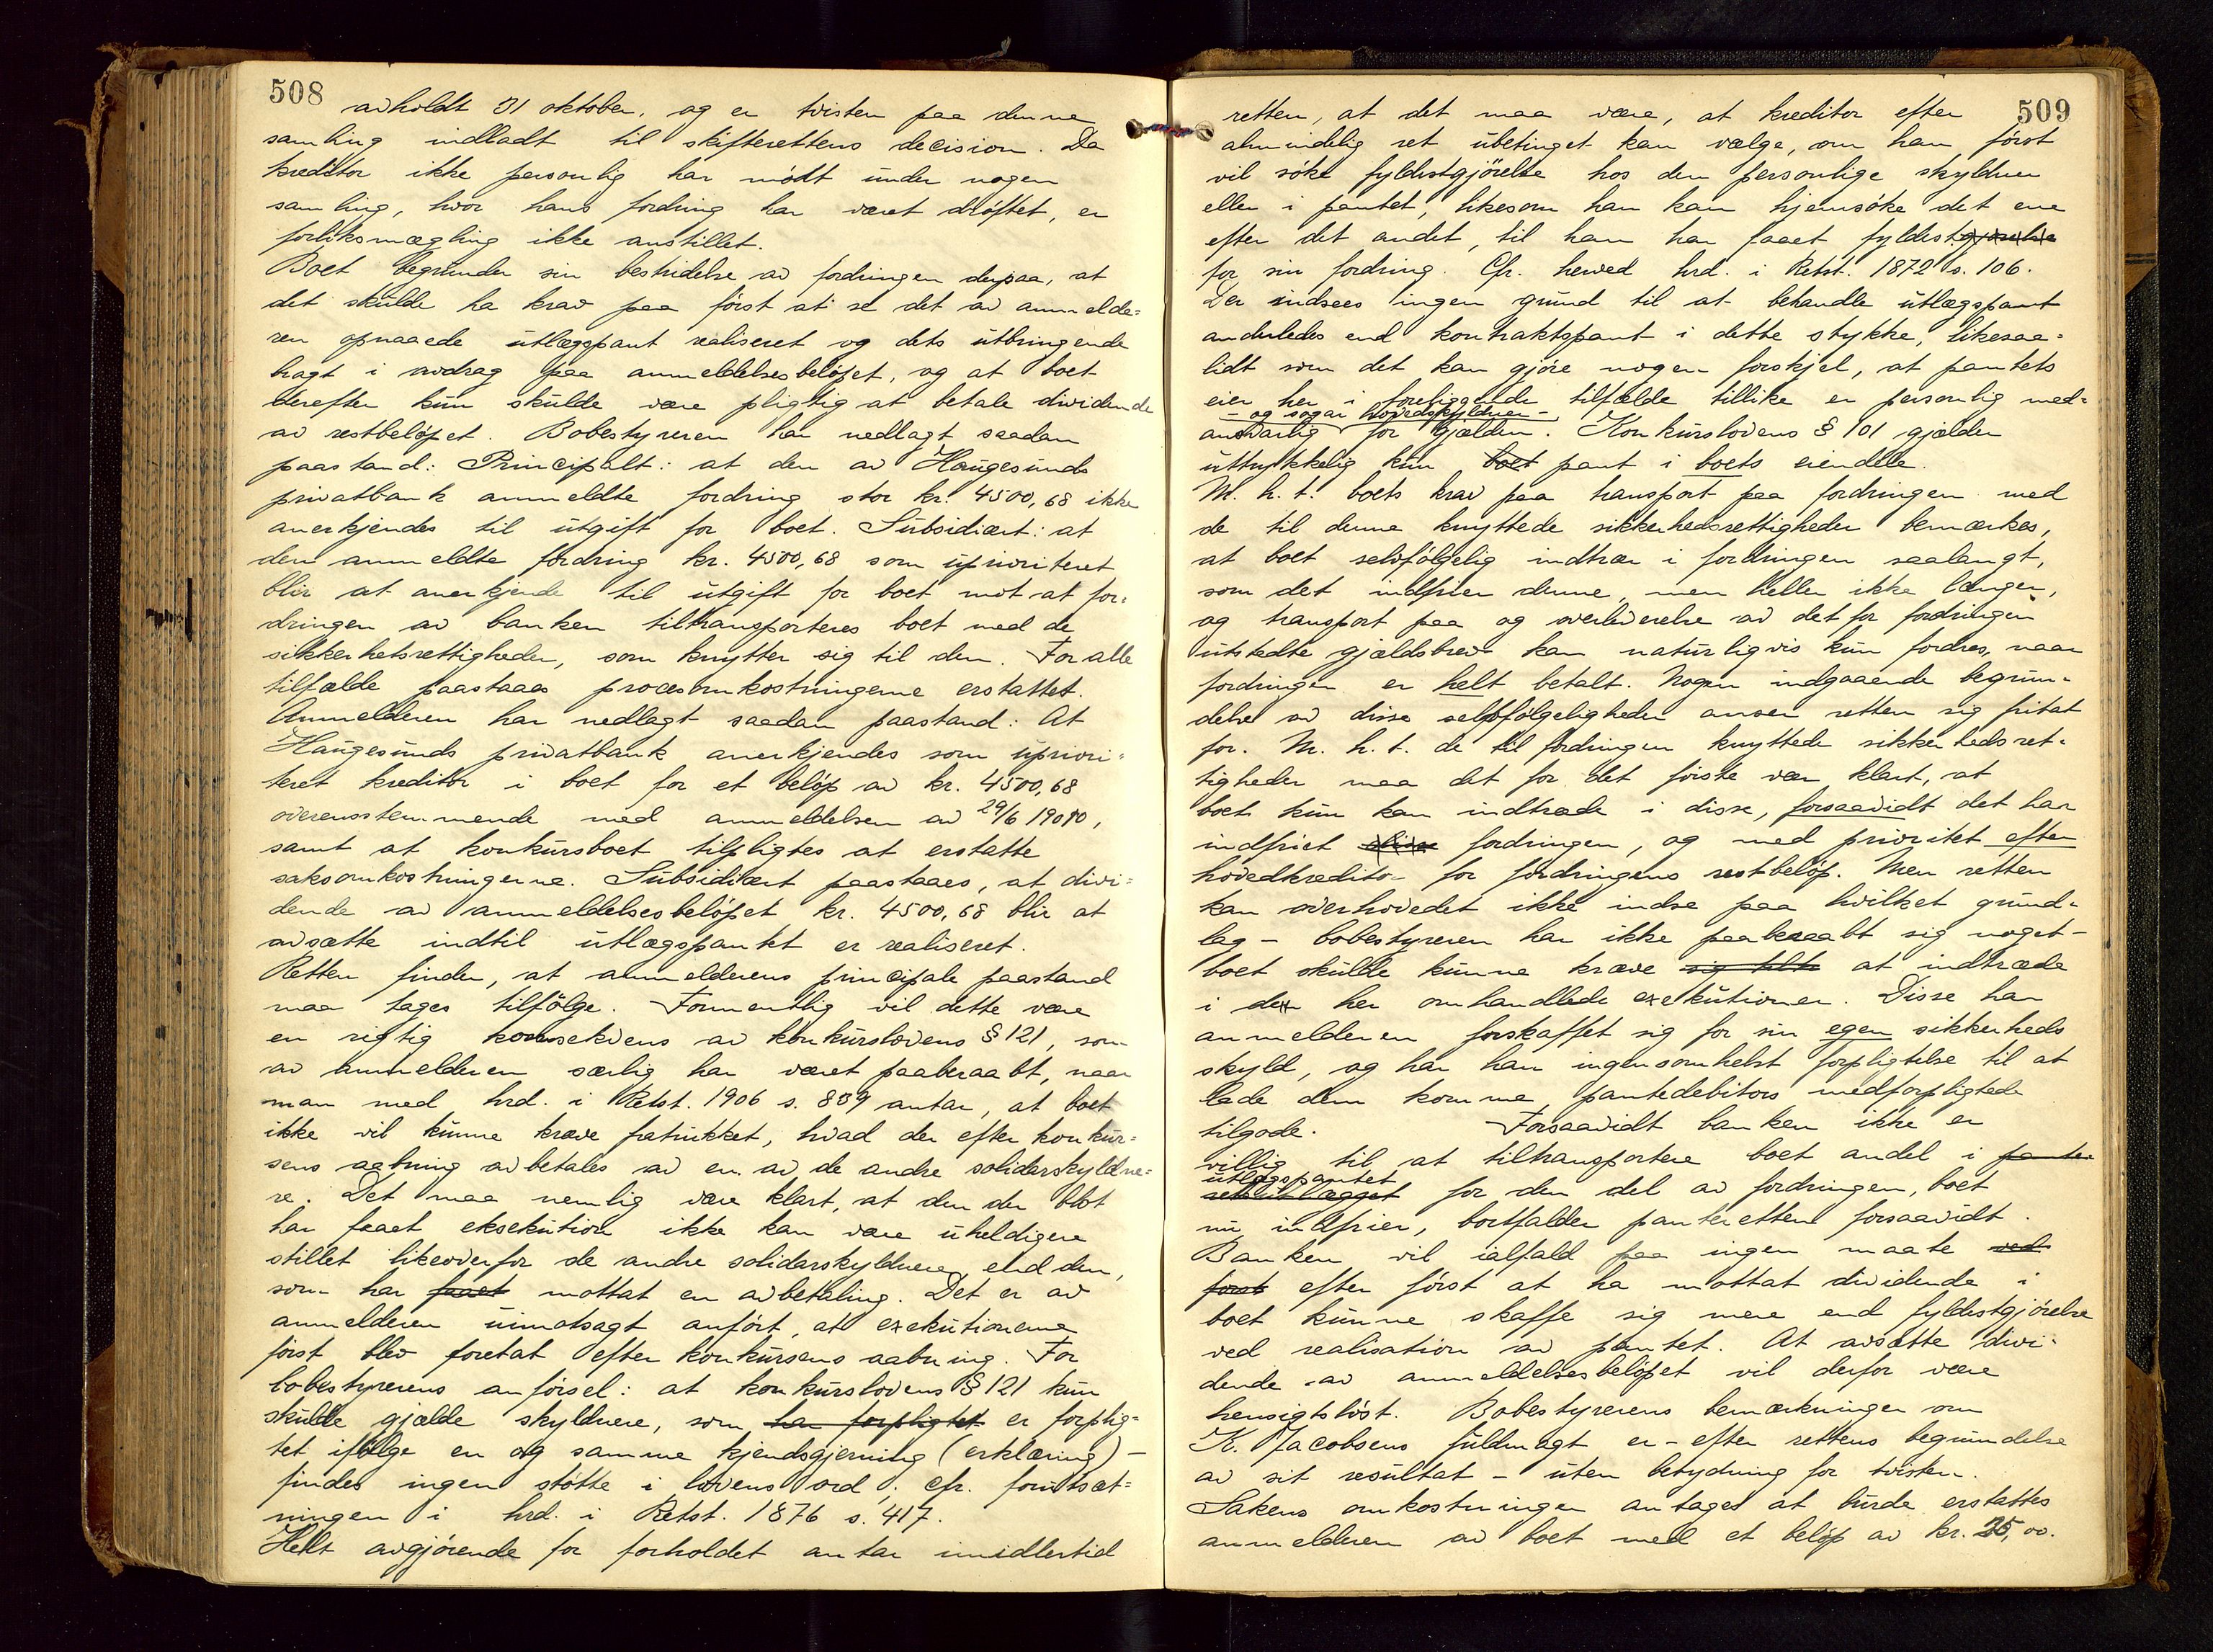 508
avholdt 31 oktober, og er tvisten paa denne
samling indladt til skifterettens decision. Da
kreditor ikke personlig har mødt under nogen
samling, hvor hans fordring har været drøftet, er
forliksmægling ikke anstillet.
Boet begrunder sin bestridelse av fordringen derpaa, at
det skulde ha krav paa først at se det av anmelde=
ren opnaaede utlægspant realiseret og dets utbringende
bragt i avdrag paa anmeldelsesbeløpet, og at boet
derefter kun skulde være pligtig at betale dividende
av restbeløpet. Bobestyreren har nedlagt saadan
paastand: Principalt: at den av Haugesunds
privatbank anmeldte fordring stor kr. 4500,68 ikke
anerkjendes til utgift for boet. Subsidiært: at
den anmeldte fordring kr. 4500,68 som uprioriteret
blir at anerkjende til utgift for boet mot at for=
dringen av banken tiltransporteres boet med de
sikkerhetsrettigheder, som knytter sig til den. For alle
tilfælde paastaaes procesomkostningerne erstattet.
Anmelderen har nedlagt saadan paastand: At
Haugesunds privatbank anerkjendes som upriori=
teret kreditor i boet for et beløp av kr. 4500,68
overensstemmende med anmeldelsen av 29/6 1910,
samt at konkursboet tilpligtes at erstatte
saksomkostningerne. Subsidiært paastaaes, at divi=
dende av anmeldelsesbeløpet kr. 4500,68 blir at
avsætte indtil utlægspantet er realiseret.
Retten finder, at anmelderens principale paastand
maa tages tilfølge. Formentlig vil dette være
en rigtig konsekvens av konkurslovens § 121, som
av anmelderen særlig har været paaberaabt, naar
man med hrd. i Retst. 1906 s. 809 antar, at boet
ikke vil kunne kræve fratrukket, hvad der efter konkur=
sens aabning avbetales av en av de andre solidarskyldne=
re. Det maa nemlig være klart, at den der blot
har faaet eksekution ikke kan være uheldigere
stillet likeoverfor de andre solidarskyldnere, end den,
som har faaet mottat en avbetaling. Det er av
anmelderen uimotsagt anført, at exekutionerne
først blev foretat efter konkursens aabning. For
bobestyrerens anførsel: at konkurslovens § 121 kun
skulde gjælde skyldnere, som har forpligtet er forplig=
tet ifølge en og samme kjendsgjerning (erklæring) –
findes ingen støtte i lovens ord, cfr. forutsæt=
ningen i hrd. i Retst. 1876 s. 417.
Helt avgjørende for forholdet antar imidlertid
509
retten, at det maa være, at kreditor efter
almindelig ret ubetinget kan vælge, om han først
vil søke fyldestgjørelse hos den personlige skyldner
eller i pantet, likesom han kan hjemsøke det ene
efter det andet, til han har faaet fyldestgjørelse
for sin fordring. Cfr. herved hrd. i Retst. 1872 s. 106.
Der indsees ingen grund til at behandle utlægspant
anderledes end kontraktspant i dette stykke, likesaa=
lidt som det kan gjøre nogen forskjel, at pantets
eier her i foreliggende tilfælde tillike er personlig med=
– og sogar hovedskyldner –
ansvarlig for gjælden. Konkurslovens § 101 gjælder
uttrykkelig kun boet pant i boets eiendele.
M. h. t. boets krav paa transport paa fordringen med
de til denne knyttede sikkerhedsrettigheder bemærkes,
at boet selvfølgelig indtrær i fordringen saalangt,
som det indfrier denne, men heller ikke længer,
og transport paa og overleverelse av det for fordringen
utstedte gjældsbrev kan naturligvis kun fordres, naar
fordringen er helt betalt. Nogen indgaaende begrun=
delse av disse selvfølgeligheder anser retten sig fritat
for. M. h. t. de til fordringen knyttede sikkerhedsret=
tigheder maa det for det første være klart, at
boet kun kan indtræde i disse, forsaavidt det har
indfriet fordringen, og med prioritet efter
hovedkreditor for fordringens restbeløp. Men retten
kan overhovedet ikke indse paa hvilket grund=
lag – bobestyreren har ikke paaberaabt sig noget –
boet skulde kunne kræve at indtræde
i de her omhandlede exekutioner. Disse har
anmelderen forskaffet sig for sin egen sikkerheds
skyld, og har han ingensomhelst forpligtelse til at
lade dem komme pantedebitors medforpligtede
tilgode. Forsaavidt banken ikke er
villig til at tiltransportere boet andel i pante
utlægspantet
for den del av fordringen, boet
nu indfrier, bortfalder panteretten forsaavidt.
Banken vil ialfald paa ingen maate ved
først efter først at ha mottat dividende i
boet kunne skaffe sig mere end fyldestgjørelse
ved realisation av pantet. At avsætte divi=
dende av anmeldelsesbeløpet vil derfor være
hensigtsløst. Bobestyrerens bemærkninger om
K. Jacobsens fuldmagt er – efter rettens begrundelse
av sit resultat – uten betydning for tvisten.
Sakens omkostninger antages at burde erstattes
anmelderen av boet med et beløp av kr. 25,00.